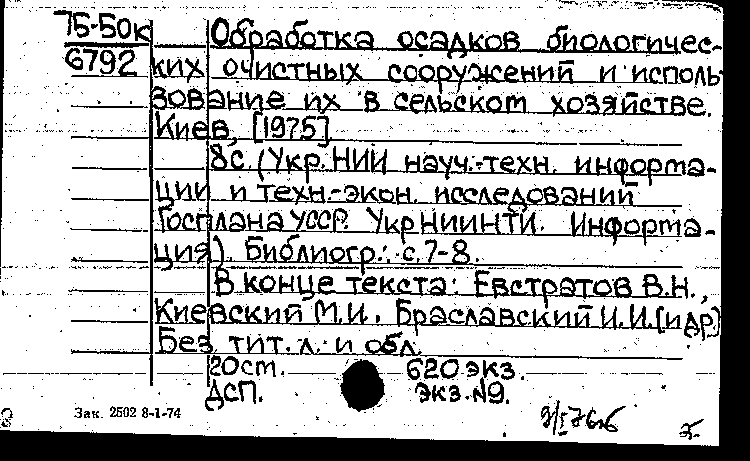 75-50к
6792
Обработка осадков биологичес-
ких очистных сооружений и исполь
зование их в сельском хозяйстве.
Киев, [1975]
8с. (Укр. НИИ науч.-техн. информа-
ции и техн.-экон. исследований
Госплана УССР. УкрНИИНТИ. Информа-
ция). Библиогр.: с. 7-8.
В конце текста: Евстратов В.Н.,
Киевский М.И., Браславский И.И. [и др.]
Без тит. л. и обл.
20 ст. 620 экз.
ДСП. Экз. №9.
Зак. 2502 8-1-74